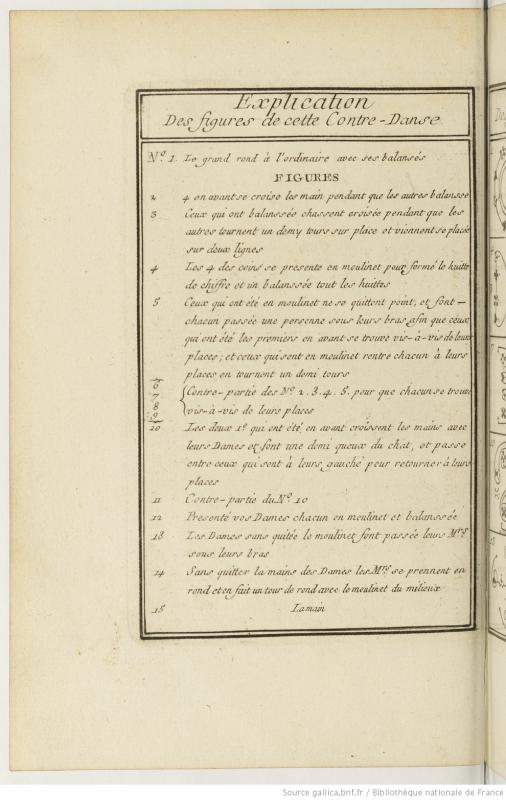 Explication
Des figures de cette Contre-Danse
Nº. 1. Le grand rond à l'ordinaire avec ses balansés
FIGURES
2 4 en avant se croise les main pendant que les autres balansse
3 Ceux qui ont balanssée chassent croisée pendant que les
autres tournent un demy tours sur place et viennent se placée
sur deux lignes
4 Les 4 des coins se presente en moulinet pour formé le huitte
de chiffre et un balanssée tout les huittes
5 Ceux qui ont été en moulinet ne se quittent point, et font —
chacun passée une personne sous leurs bras afin que ceux
qui ont été les premiers en avant se trouve vis-à-vis de leurs
places; et ceux qui sont en moulinet rentre chacun à leurs
places en tournent un demi tours
6
7 Contre-partie des Nº. 2. 3. 4. 5. pour que chacun se trouve
8 vis-à-vis de leurs places
9
10 Les deux 1ers qui ont été en avant croissent les mains avec
leurs Dames et font une demi queux du chat, et passe
entre ceux qui sont à leurs gauche pour retourner à leurs
places
11 Contre-partie du Nº. 10
12 Presenté vos Dames chacun en moulinet et balanssée
13 Les Dames sans quitée le moulinet font passée leurs Mrs
sous leurs bras
14 Sans quitter la mains des Dames les Mrs se prennent en
rond et en fait un tour de rond avec le moulinet du milieux
15 La main
Source gallica.bnf.fr / Bibliothèque nationale de France